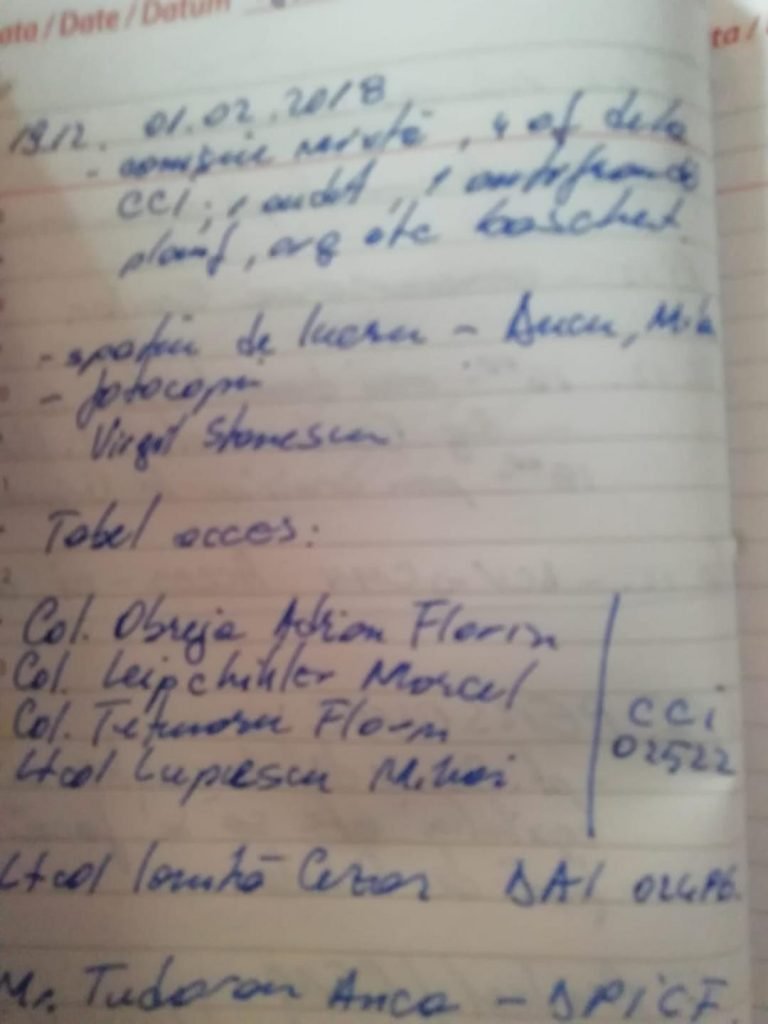 ata / Date / Datum
ta /
19.12. 01.02.2018
- comisie mixtă, 4 of de la
CCI; 1 audit, 1 antifraudă
planif, org etc baschet
- spațiu de lucru - Ducu,
- fotocopii
Virgil Stanescu
Tabel acces:
Col. Obreja Adrian Florin
Col. Leipchihler Marcel
Col. Florin
Ltcol Lupescu Mihai
CCi
02522
Ltcol Ioniță Cezar DAI
Mr. Tudoran Anca - DPiCF